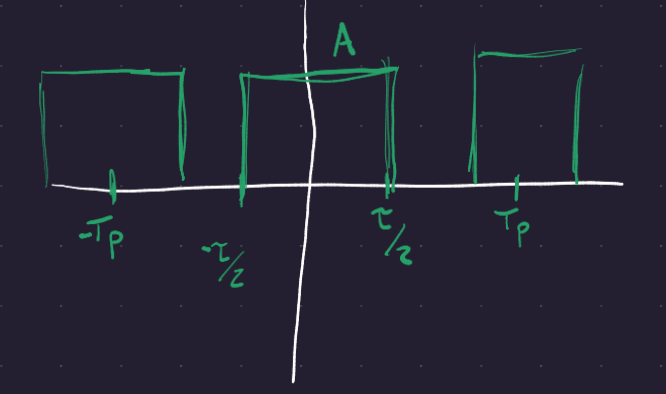 A
-Tp
-τ/2
τ/2
Tp